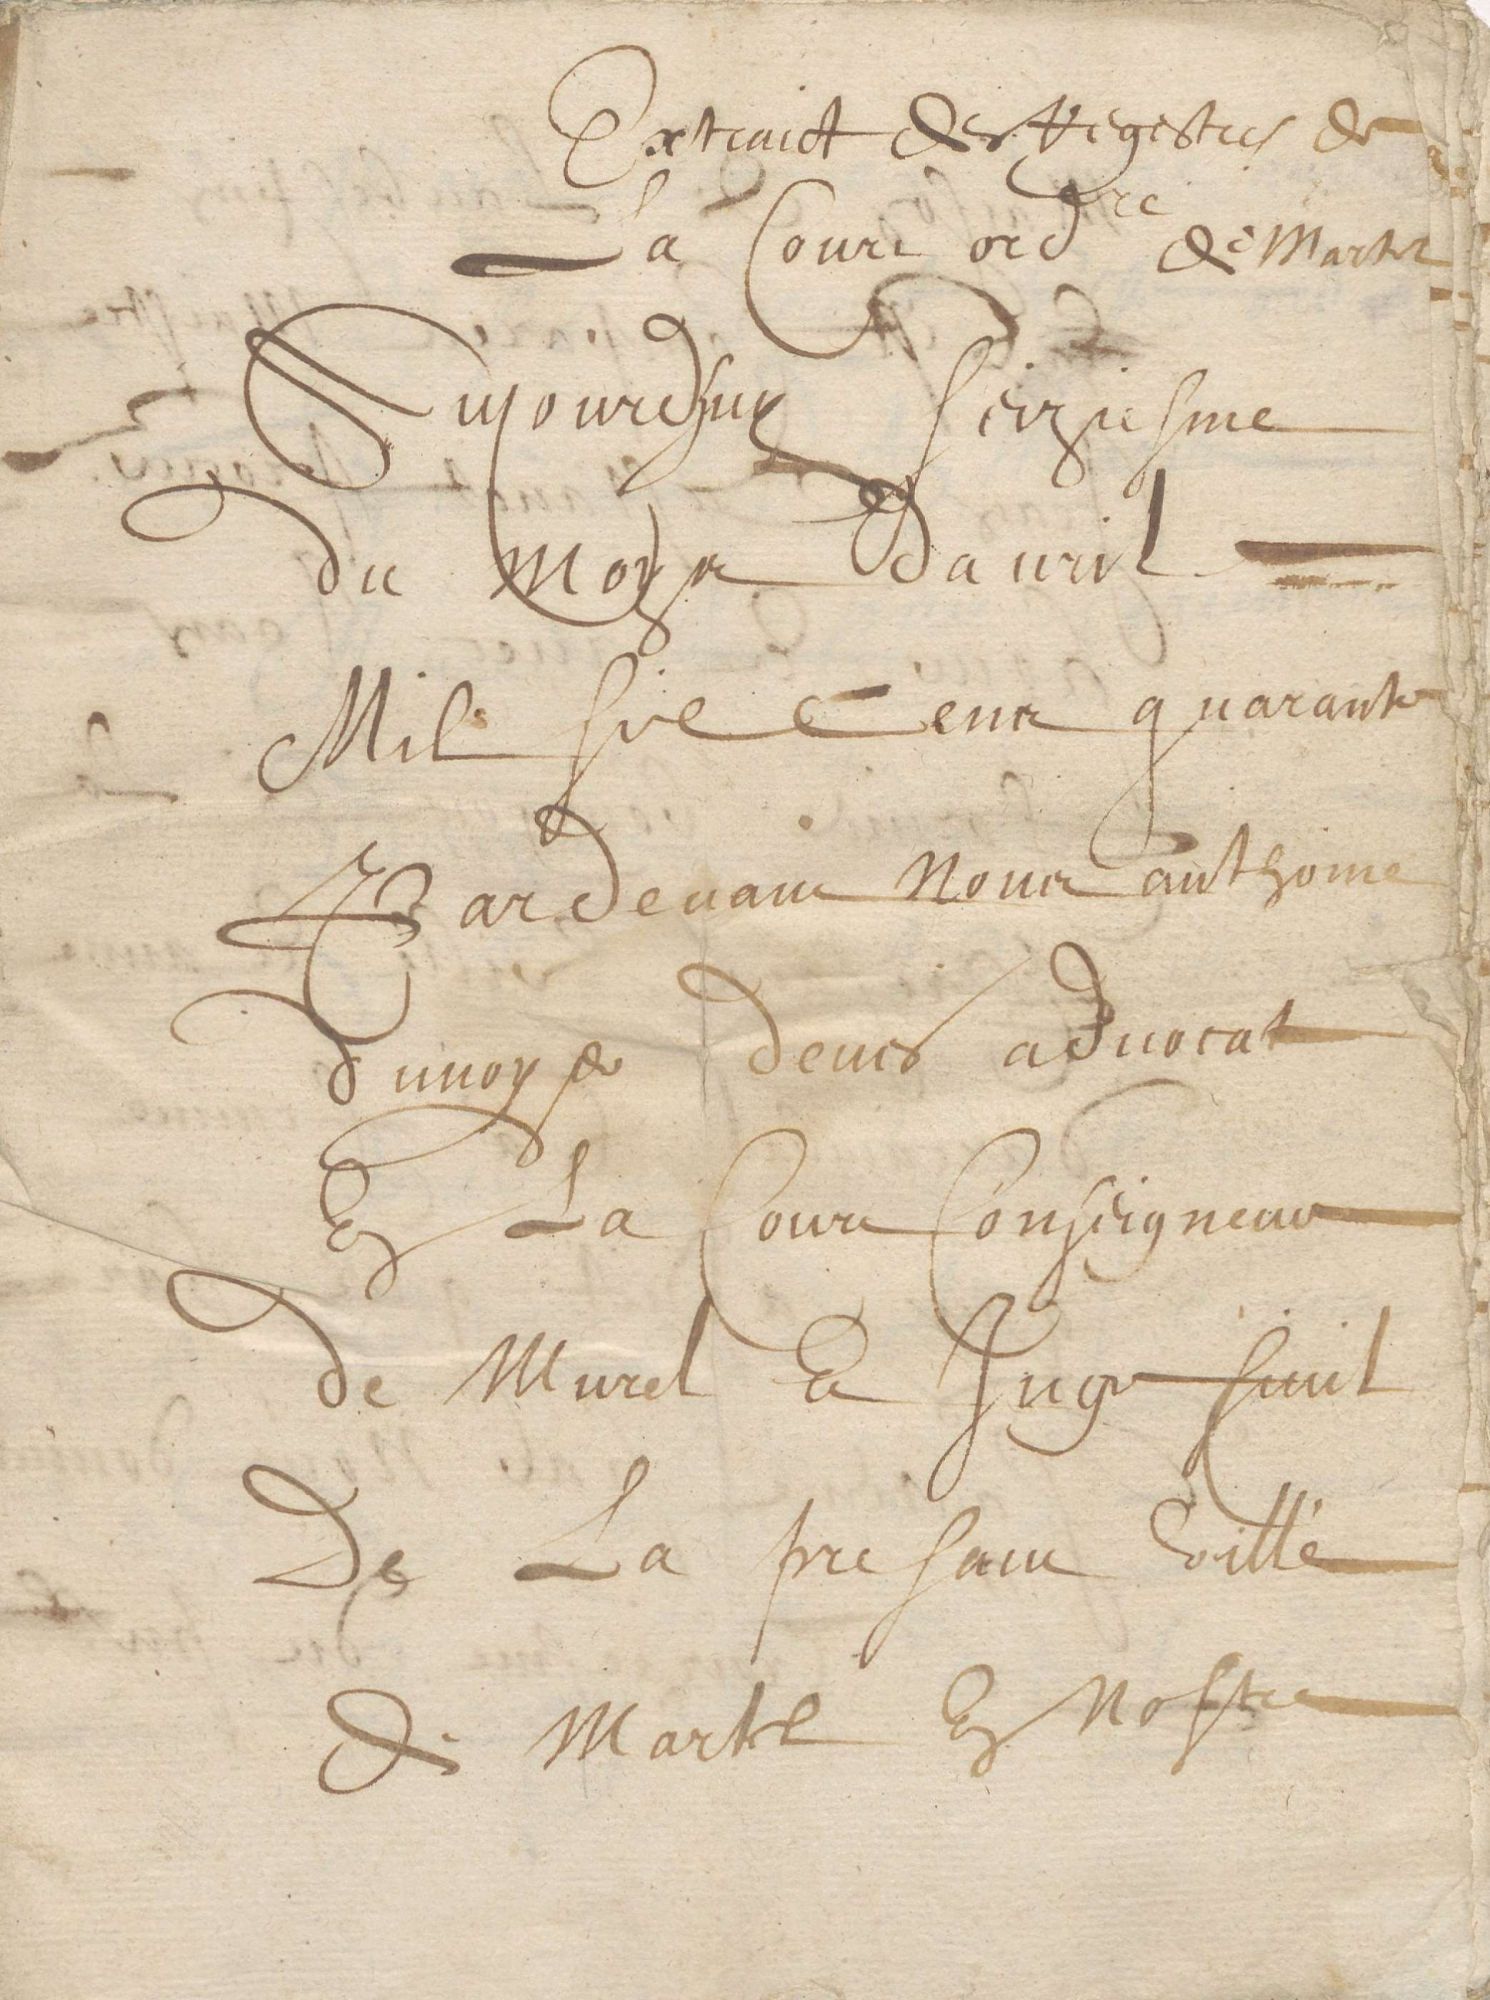 Extraict des Regestres de
La Cour ord^re de Martel
Aujourdhuy seiziesme
du moys dauril
Mil six cens quarante
Pardeuant Nous anthoine
dunoyer deues aduocat
En La Cour Conseigneur
de Murel et Juge siuil
De La presant ville
de Martel En nostre